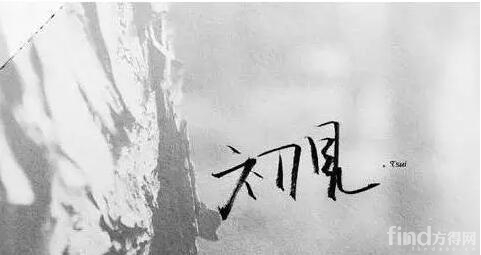 初見
. Tsui
find方得网